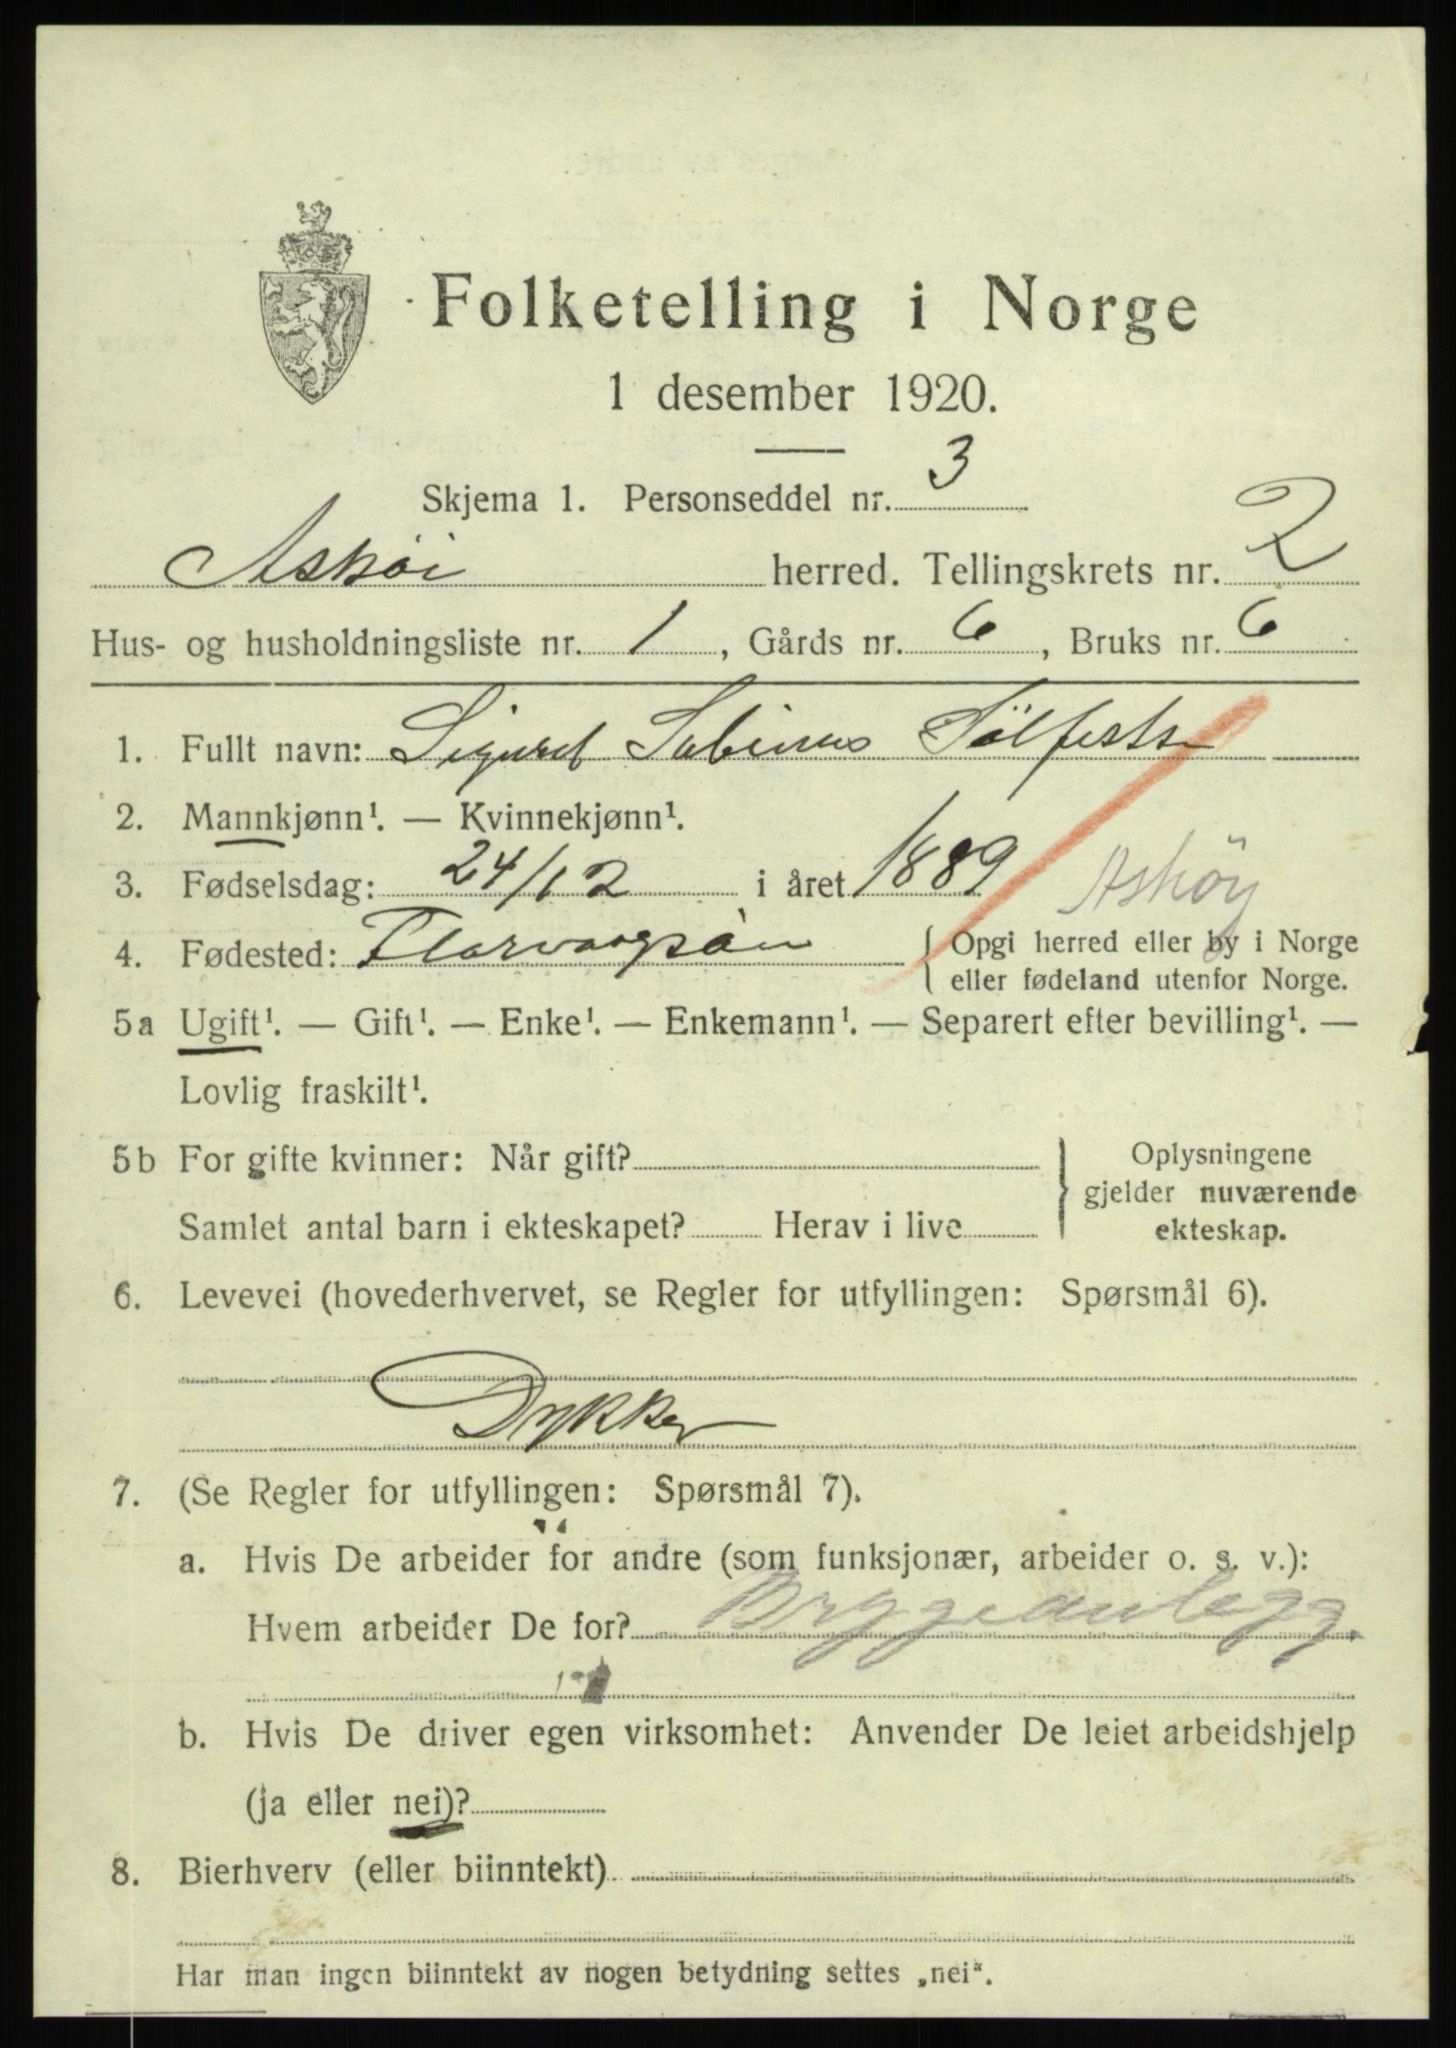 Folketelling i Norge
1 desember 1920.
Skjema 1. Personseddel nr. 3
Askøi herred. Tellingskrets nr. 2
Hus- og husholdningsliste nr. 1, Gårds nr. 6, Bruks nr. 6
1. Fullt navn: Sigurd Sabinus Sölfestsen
2. Mannkjønn¹. — Kvinnekjønn¹.
3. Fødselsdag: 24/12 i året 1889
Askøy
4. Fødested: Florvaagsöen { Opgi herred eller by i Norge
eller fødeland utenfor Norge.
5a Ugift¹. — Gift¹. — Enke¹. — Enkemann¹. — Separert efter bevilling¹. —
Lovlig fraskilt¹.
5b For gifte kvinner: Når gift? } Oplysningene
gjelder nuværende
Samlet antal barn i ekteskapet? Herav i live
ekteskap.
6. Levevei (hovederhvervet, se Regler for utfyllingen: Spørsmål 6).
Dykker
7. (Se Regler for utfyllingen: Spørsmål 7).
a. Hvis De arbeider for andre (som funksjonær, arbeider o. s. v.):
Hvem arbeider De for? Bryggeanlegg.
b. Hvis De driver egen virksomhet: Anvender De leiet arbeidshjelp
(ja eller nei)?
8. Bierhverv (eller biinntekt)
Har man ingen biinntekt av nogen betydning settes „nei“.